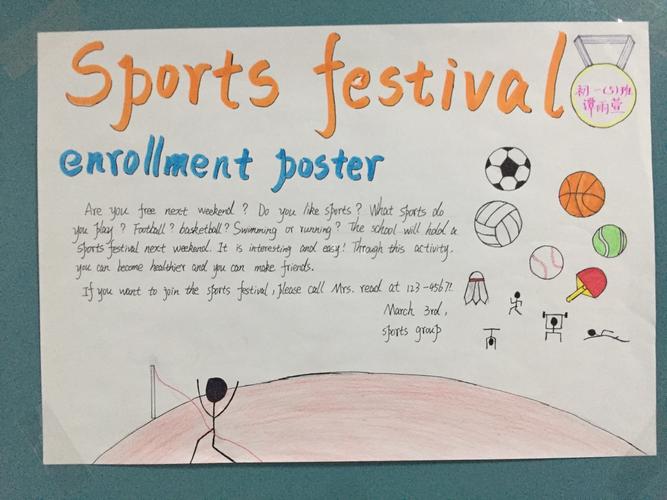 Sports festival
初一(5)班
谭雨萱
enrollment poster
Are you free next weekend? Do you like sports? What sports do
you play? Football? basketball? Swimming or running? The school will hold a
sports festival next weekend. It is interesting and easy! Through this activity.
you can become healthier and you can make friends.
If you want to join the sports festival, please call Mrs. read at 123-45671.
March 3rd,
sports group